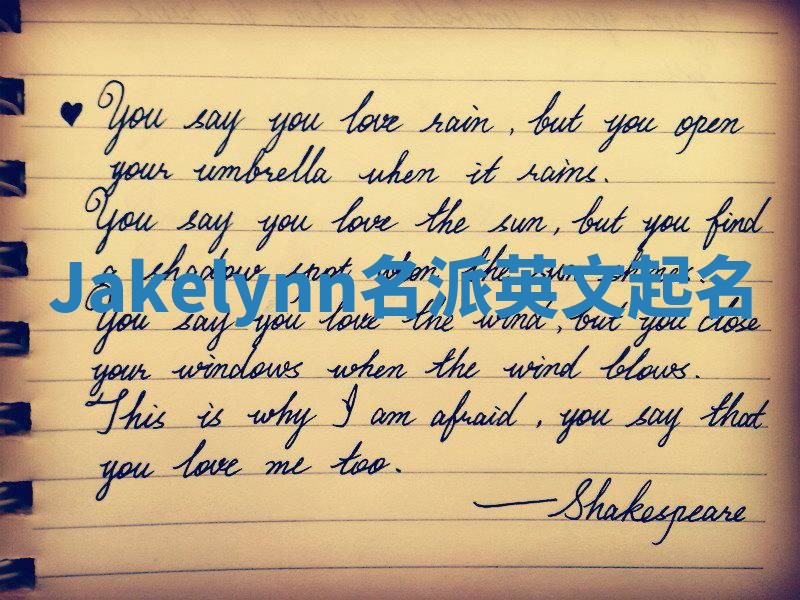 ♥ You say you love rain, but you open
your umbrella when it rains.
You say you love the sun, but you find
a shadow spot when the sun shines.
Jakelynn名派英文起名
You say you love the wind, but you close
your windows when the wind blows.
This is why I am afraid, you say that
you love me too.
—Shakespeare